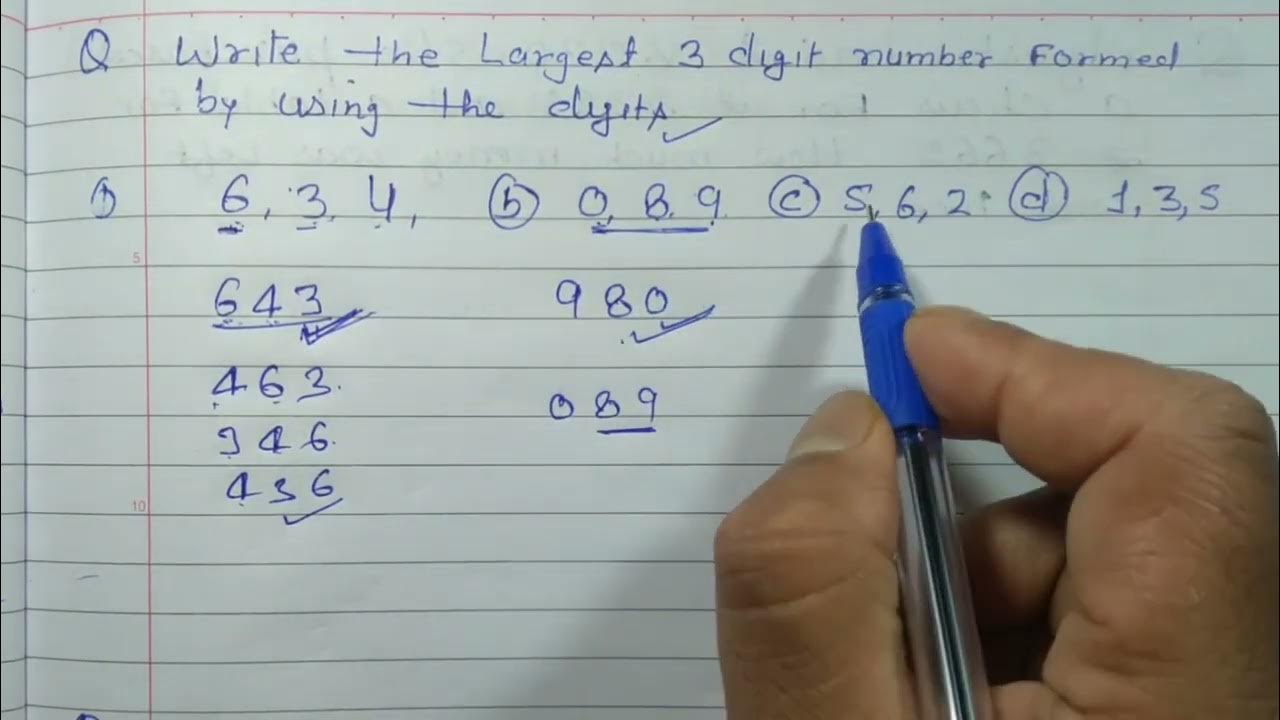 Q Write the Largest 3 digit number Formed
by using the digits
6, 3, 4, (b) 0, 8, 9 (c) 5, 6, 2 (d) 1, 3, 5
5
643 980
463. 089
346.
436
10